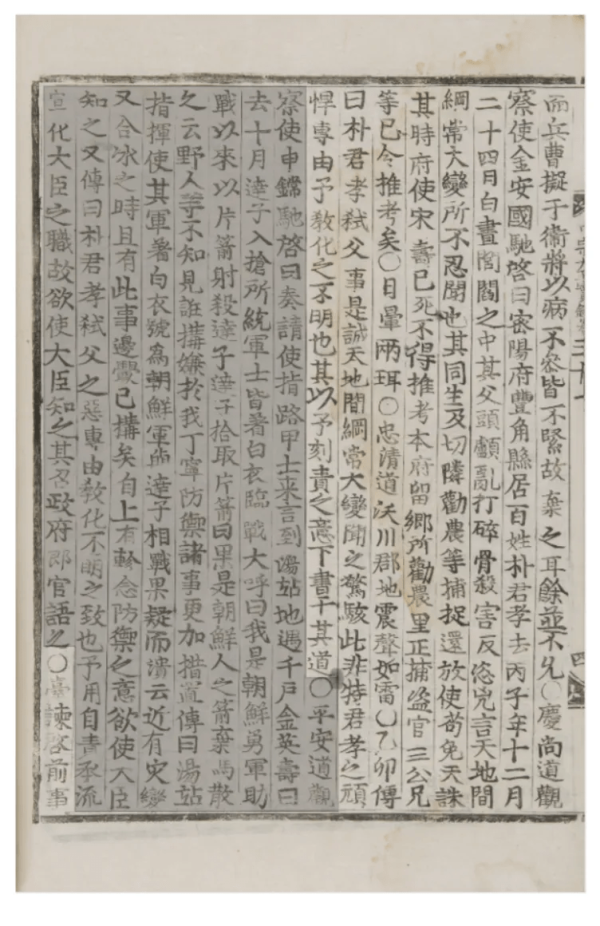 而兵曹擬于衛將以病不容皆不緊故棄之耳餘並不允○慶尙道觀
察使金安國馳啓曰密陽府豐角縣居百姓朴君孝去丙子年十二月
二十四日白晝閭閻之中其父頭顱亂打碎骨殺害反恣兇言天地間
綱常大變所不忍聞也其同生及切隣勸農等捕捉還放使苟免天誅
其時府使宋壽已死不得推考本府留鄕所勸農里正捕盜官三公兄
等已令推考矣○日暈兩珥○忠淸道沃川郡地震聲如雷○乙卯傳
曰朴君孝弑父事是誠天地間綱常大變聞之驚駭此非特君孝之頑
悍專由予敎化之不明也其以予刻責之意下書于其道○平安道觀
察使申鏛馳啓曰奏請使指路甲士來言到湯站地遇千戶金英壽曰
去十月達子入搶所統軍士皆著白衣臨戰大呼曰我是朝鮮勇軍助
戰以來以片箭射殺達子達子拾取片箭曰果是朝鮮人之箭棄馬散
之云野人等不知見誑構嫌於我丁寧防禦諸事更加措置傳曰湯站
指揮使其軍著白衣號爲朝鮮軍與達子相戰果疑而潰云近有災變
又合氷之時且有此事邊釁已構矣自上有軫念防禦之意欲使大臣
知之又傳曰朴君孝弑父之惡專由敎化不明之致也予用自責承流
宣化大臣之職故欲使大臣知之其召政府郞官語之○臺諫啓前事
四